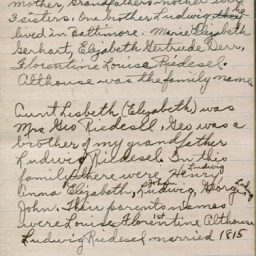 mother, Grandfathers mother were
3 sisters. One brother Ludwig they
lived in Baltimore. Marie Elizabeth
Gerhart, Elizabeth Gertrude Derr,
Florentine Louise Riedesel.
Althouse was the family name
Aunt Lisbeth (Elizabeth) was
Mrs Geo Riedesell, Geo was a
brother of my grandfather
Ludwig Riedesel. In this
family there were Henry Ludwig
Anna Elizabeth, Ludwig, George
John. Their parents names
were Louise Florentine Althouse
Ludwig Riedesel married 1815